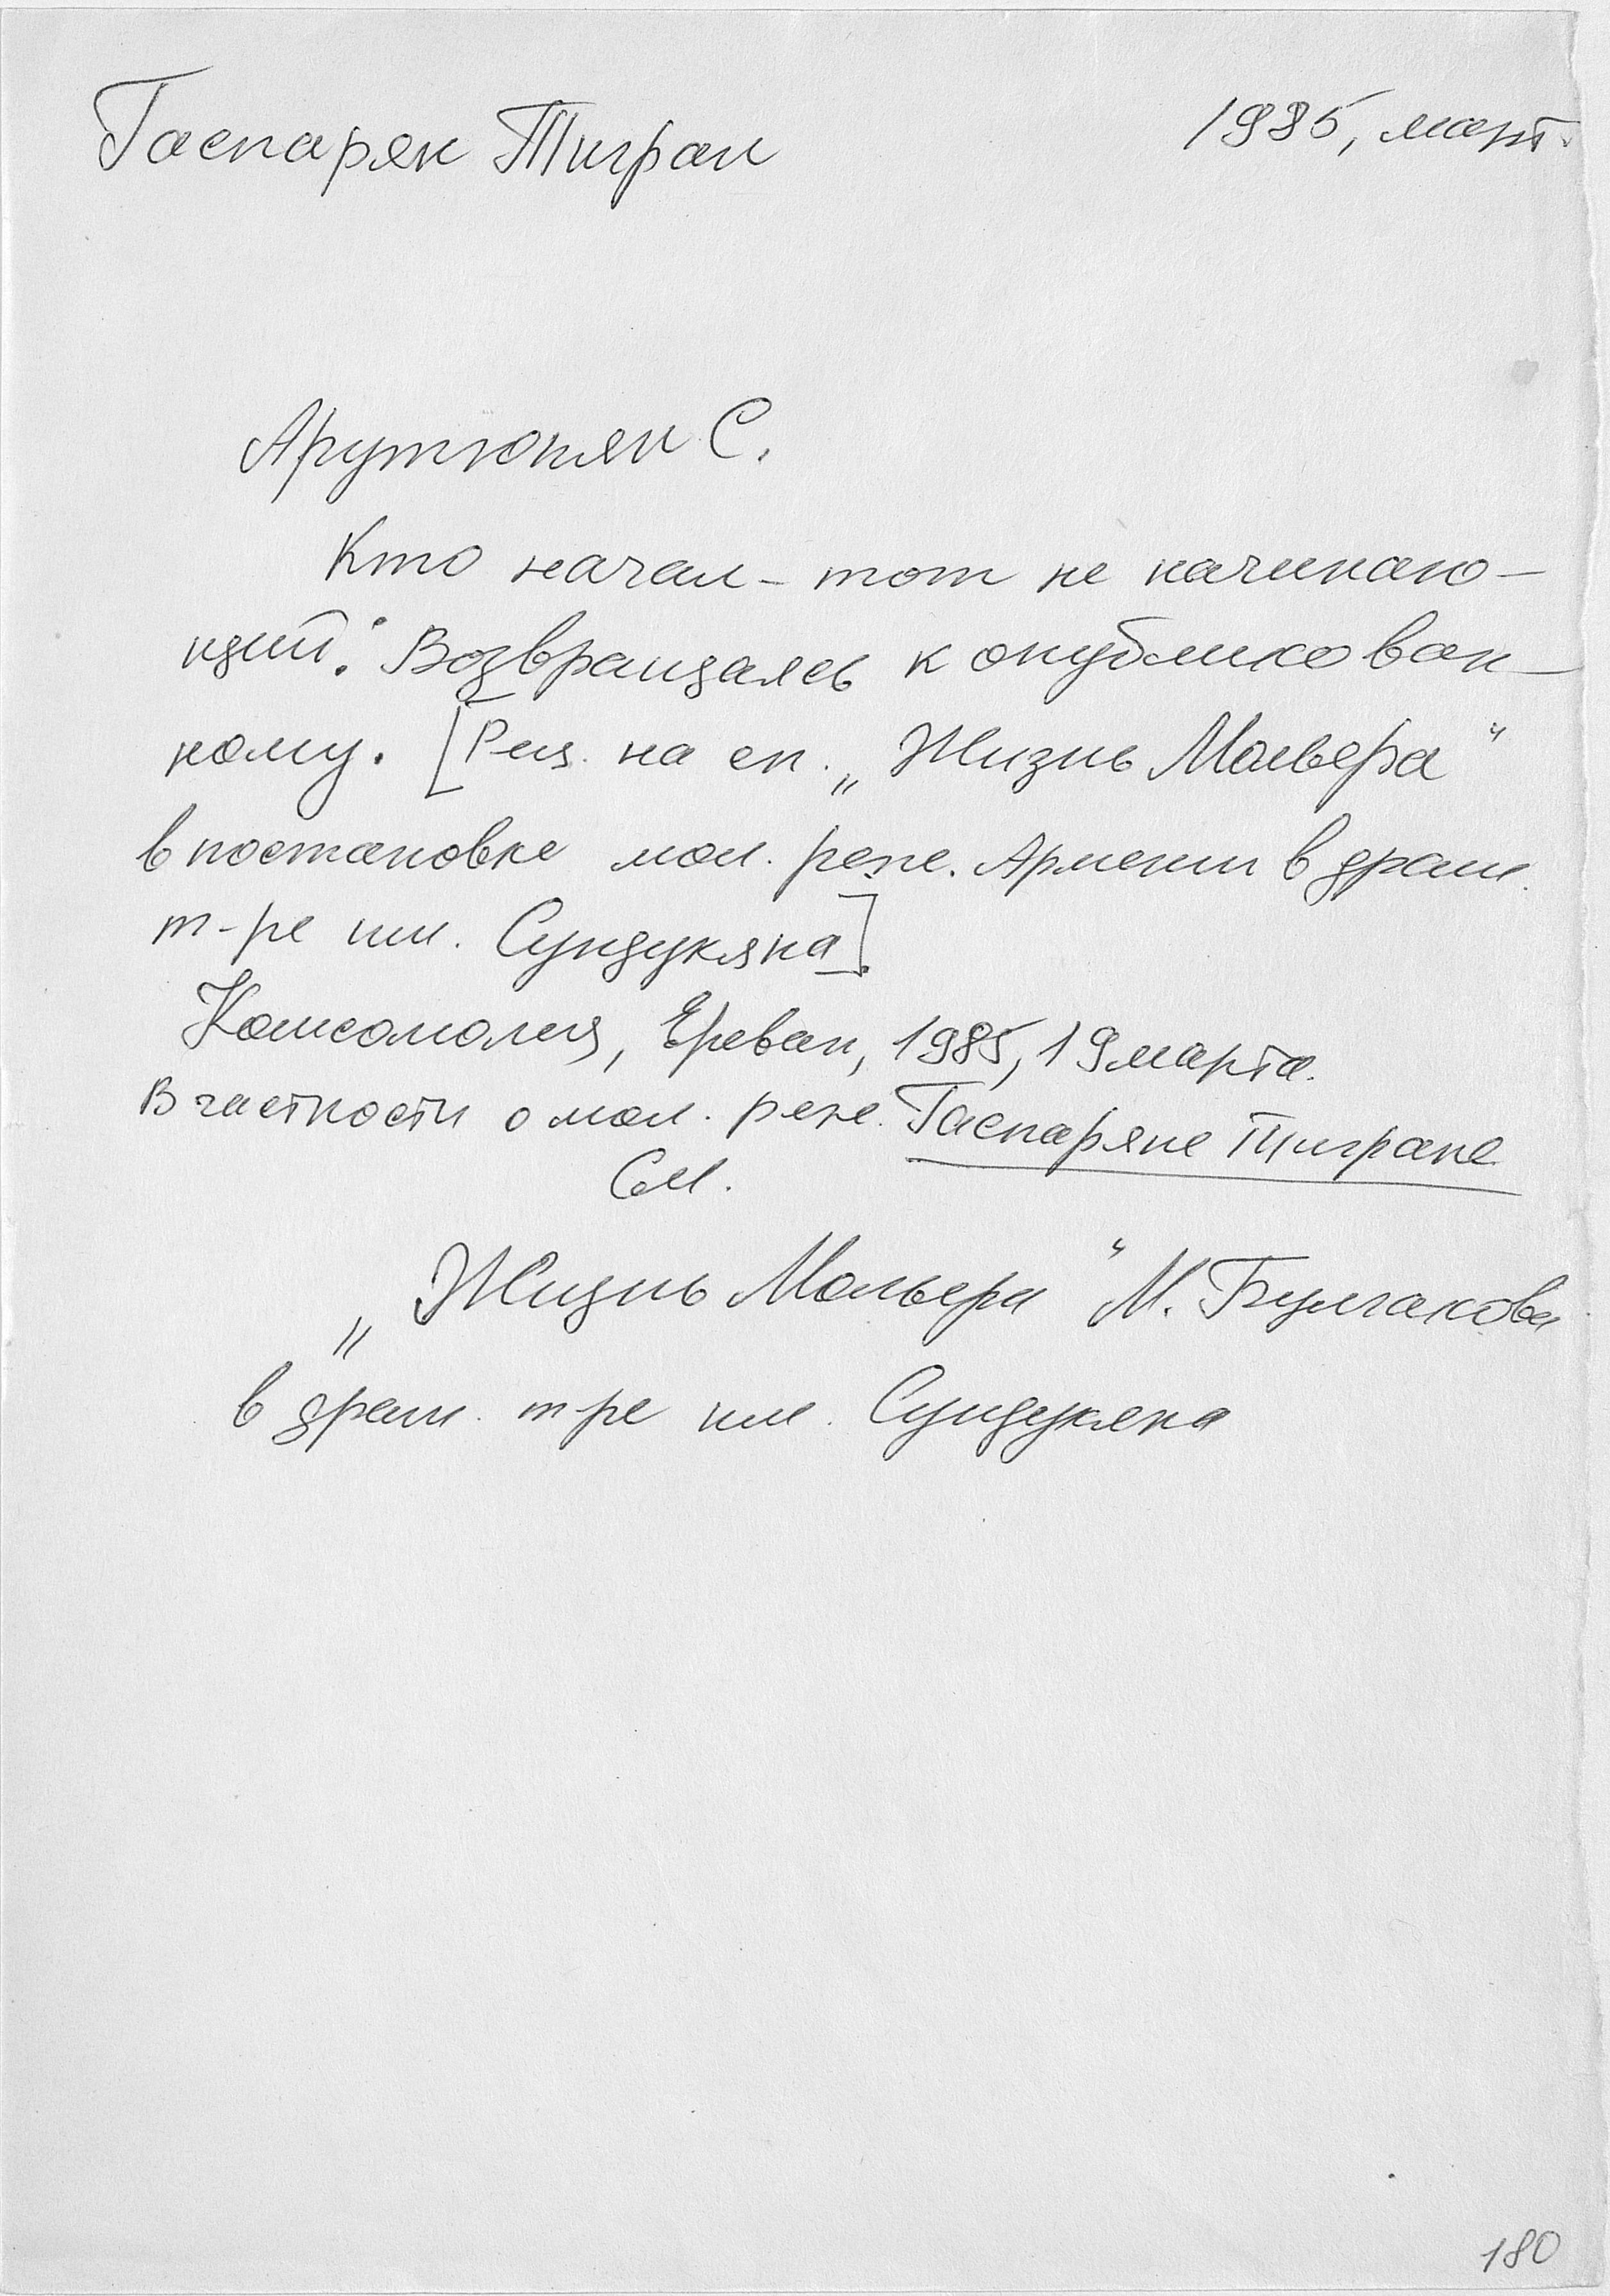 Гаспарян Тигран
1985, март.
Арутюнян С.
Кто начал – тот не начинаю-
щий: Возвращаясь к опубликован-
ному. [Рец. на сп. „Жизнь Мольера“
в постановке мол. реж. Армении в драм.
т-ре им. Сундукяна].
Комсомолец, Ереван, 1985, 19 марта.
В частности о мол. реж. Гаспаряне Тигране
См.
„Жизнь Мольера“ М. Булгакова
в драм. т-ре им. Сундукяна
180